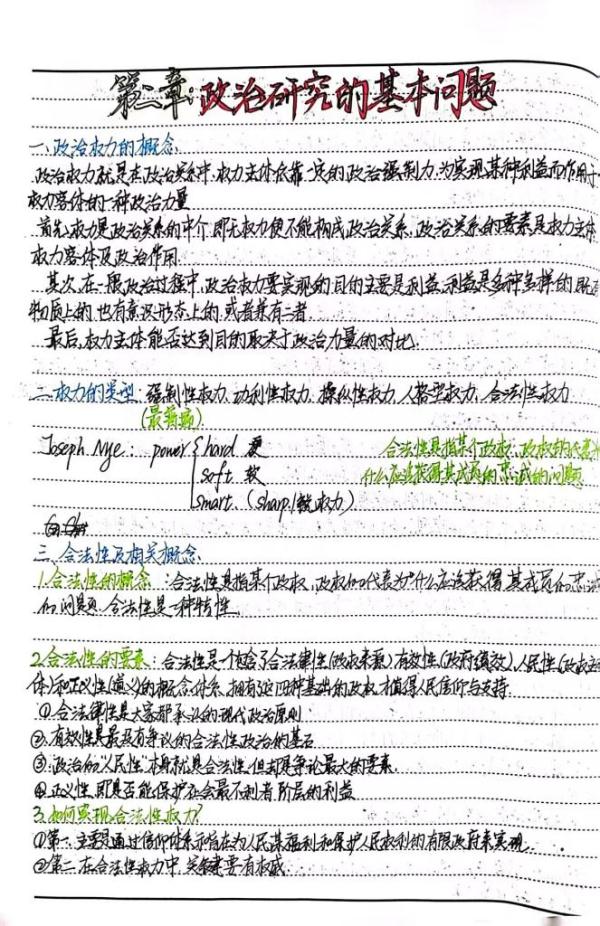 第二章:政治研究的基本问题
一.政治权力的概念
政治权力就是在政治关系中,权力主体依靠一定的政治强制力,为实现某种利益而作用于
权力客体的一种政治力量
首先,权力是政治关系的中介,即无权力便不能构成政治关系,政治关系的要素是权力主体
权力客体及政治作用.
其次,在一般政治过程中,政治权力要实现的目的主要是利益,利益是多种多样的,既有
物质上的,也有意识形态上的,或者兼有二者.
最后,权力主体能否达到目的取决于政治力量的对比.
二.权力的类型:强制性权力、功利性权力、操纵性权力、人格型权力、合法性权力
(最普遍)
Joseph Nye: power hard 硬
合法性是指某个政权,政权的代表为
soft 软
什么应该获得其成员的忠诚的问题
smart.(sharp/锐权力)
三.合法性及相关概念
1.合法性的概念:合法性是指某个政权、政权的代表为什么应该获得其成员的忠诚
的问题.合法性是一种特性.
2.合法性的要素:合法性是一个包含了合法律性(政权来源)有效性(政府绩效),人民性(政权主
体)和正义性(道义)的概念体系,拥有这四种基础的政权才值得人民信仰与支持.
①合法律性是大家都承认的现代政治原则
②有效性是最具有争议的合法性政治的基石
③政治的"人民性"本身就是合法性,但却是争论最大的要素.
④正义性,即是否能保护社会最不利者阶层的利益
3.如何实现合法性权力?
①第一,主要是通过信仰体系和旨在为人民谋福利和保护人民权利的有限政府来实现.
②第二,在合法性权力中,关键要有权威.